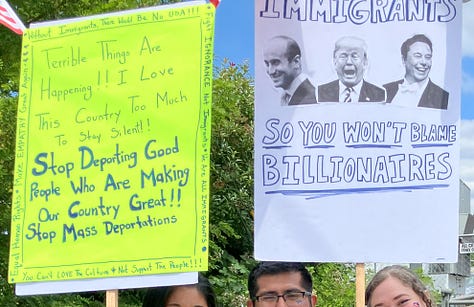 Without Immigrants There Would Be No USA!!!
Fight IGNORANCE Not Immigrants ♥ We Are All IMMIGRANTS
Equal Human Rights ♥ Make EMPATHY Great Again
Terrible Things Are
Happening!! I Love
This Country Too Much
To Stay Silent!!
Stop Deporting Good
People Who Are Making
Our Country Great!!
Stop Mass Deportations
You Can't LOVE The Culture & Not Support The People!!!
IMMIGRANTS
SO YOU WON'T BLAME
BILLIONAIRES